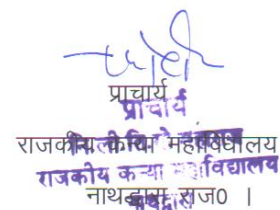 प्राचार्य
प्राचार्य
राजकीय कन्या महाविद्यालय
राजकीय कन्या महाविद्यालय
नाथद्वारा, राज0 ।